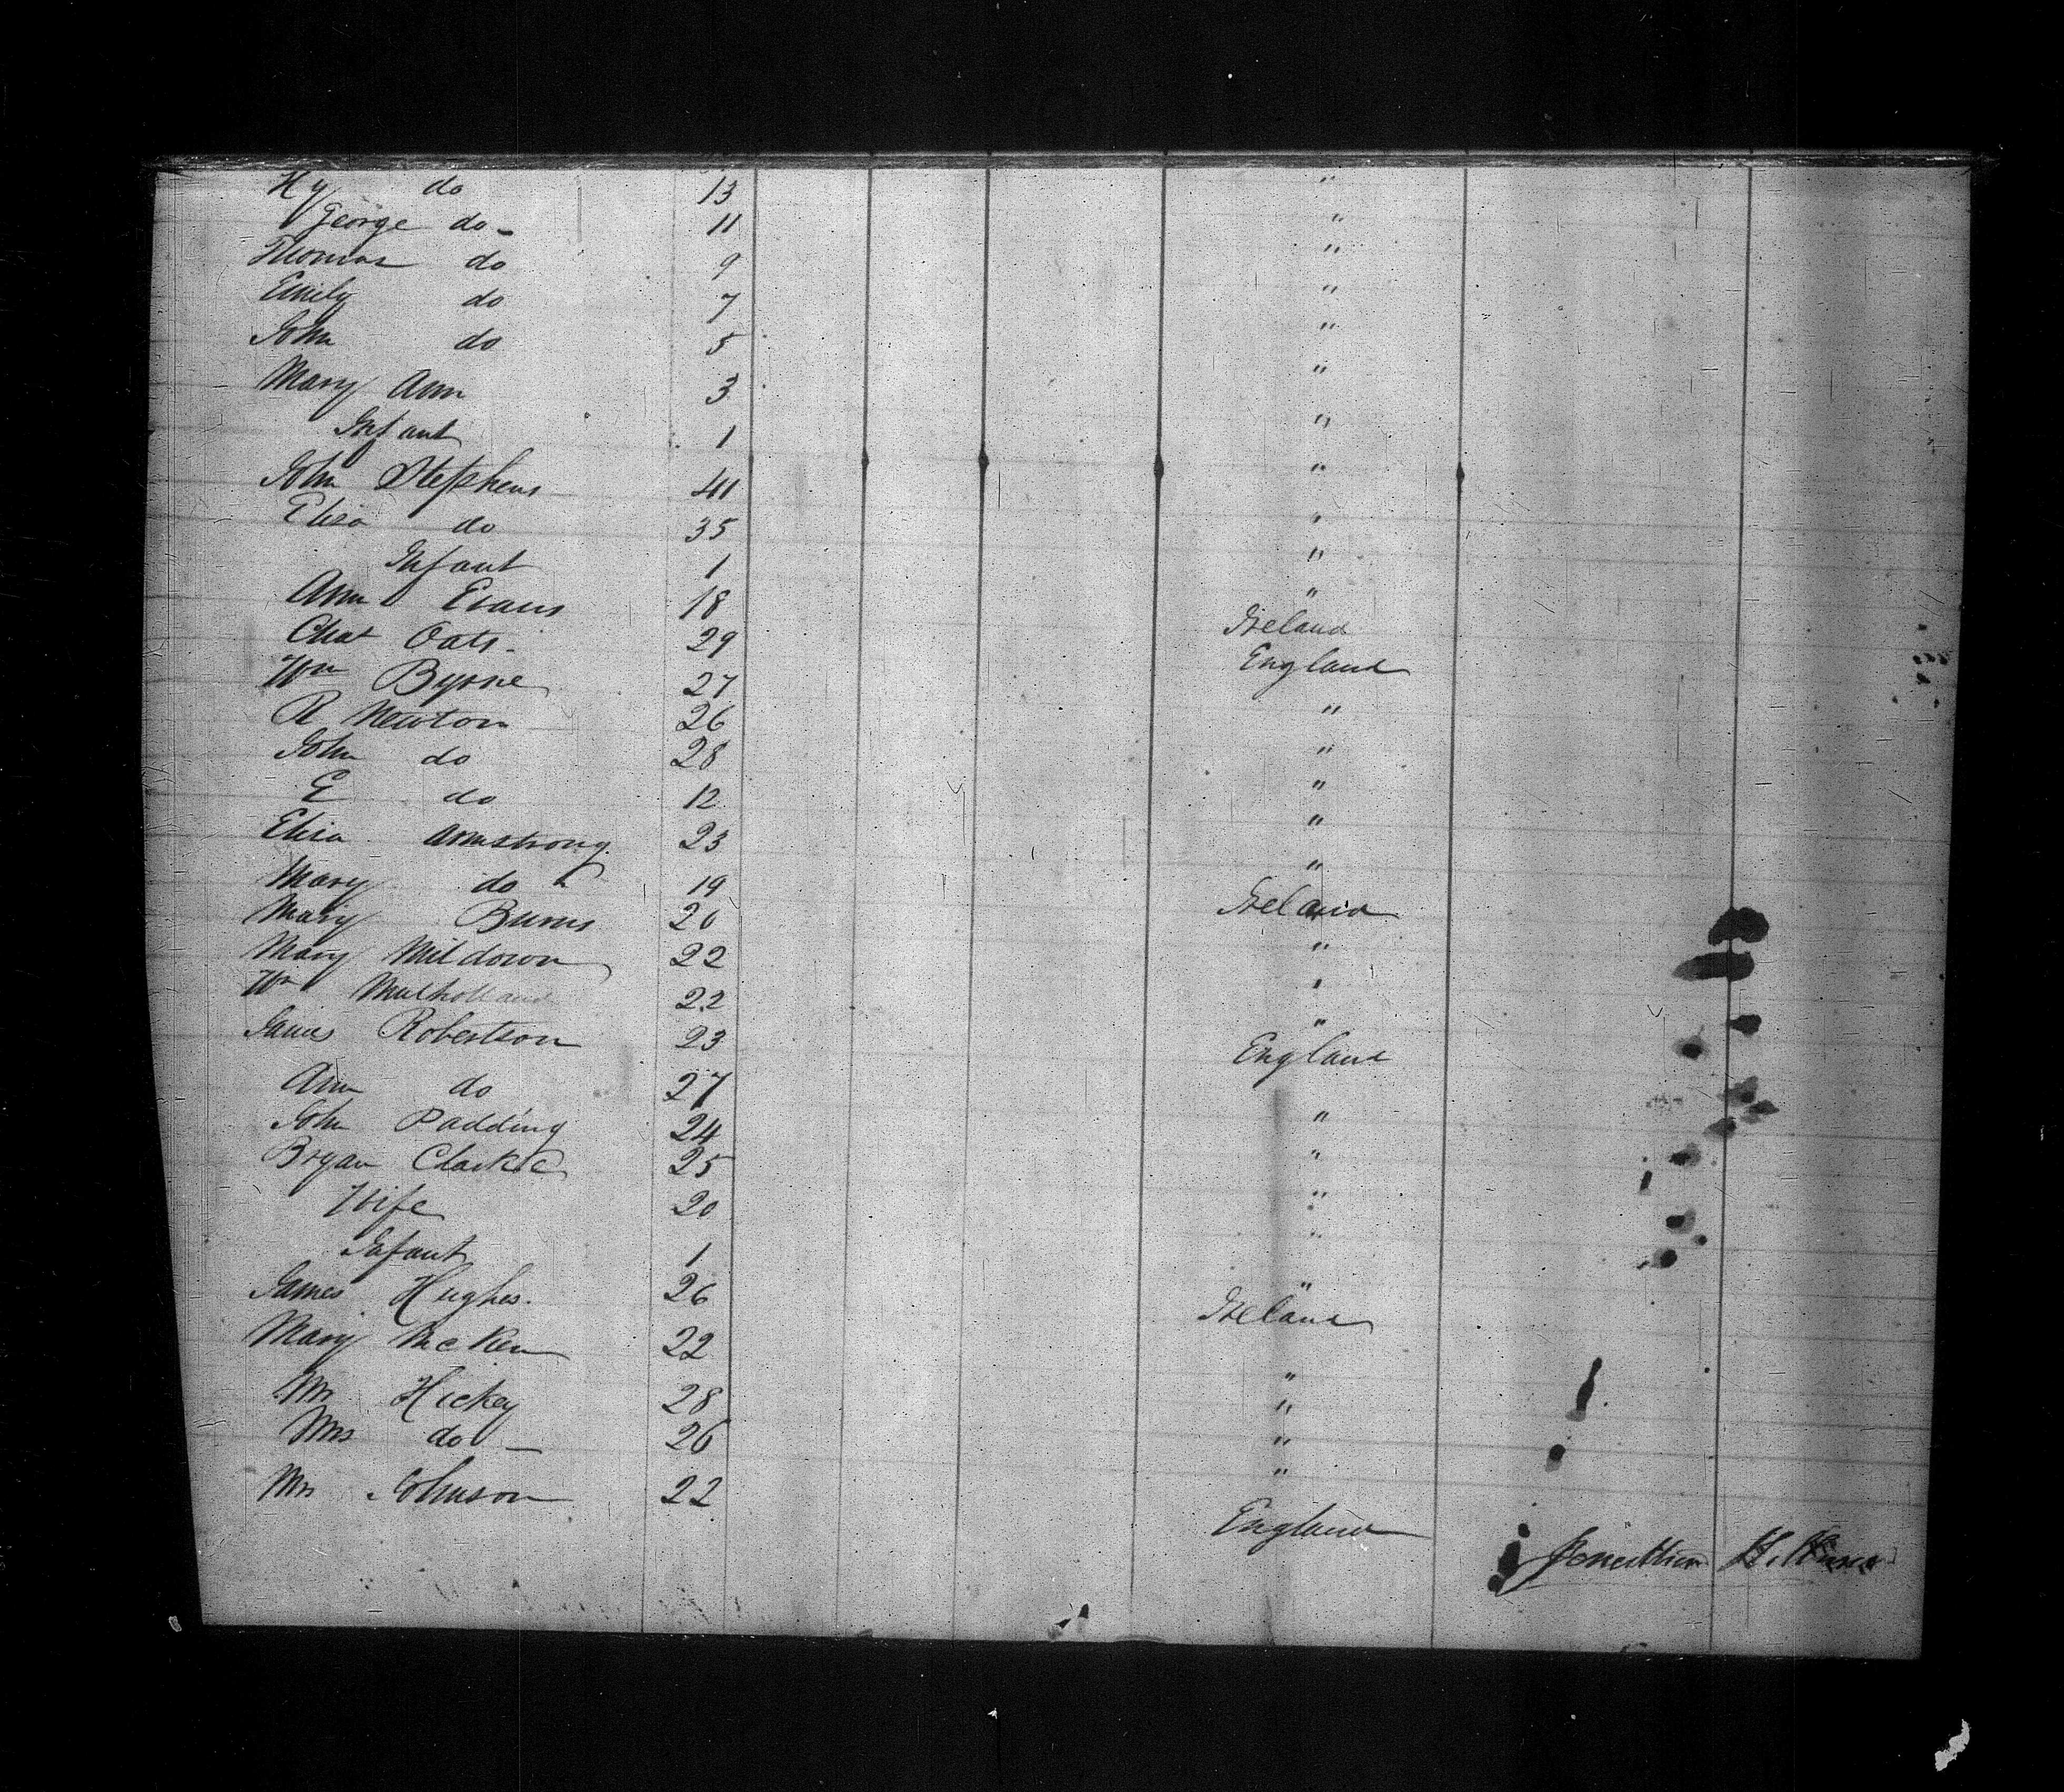 Hy do 13 "
George do - 11 "
Thomas do 9 "
Emily do 7 "
John do 5 "
Mary Ann 3 "
Infant 1 "
John Stephens 41 "
Eliza do 35 "
Infant 1 "
Ann Evans 18 "
Chat Oats. 29 Ireland
Wm Byrne 27 England
R Newton 26 "
John do 28 "
E do 12 "
Eliza Armstrong. 23 "
Mary do 19 "
Mary Burns 20 Ireland
Mary Mildown 22 "
Wm Mulholland 22 "
James Robertson 23 "
Ann do 27 England
John Padding 24 "
Bryan Clarke 25 "
Wife 20 "
Infant 1 "
James Hughes. 26 "
Mary McKen 22 Ireland
Mr Hickey 28 "
Mrs do - 26 "
Mrs Johnson 22 "
England
Jonathan